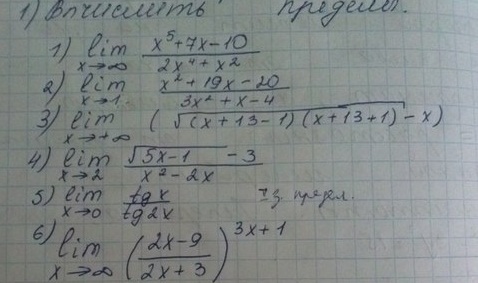 1) Вычислить пределы.
1) lim x→∞ (x⁵+7x-10)/(2x⁴+x²)
2) lim x→1 (x²+19x-20)/(3x²+x-4)
3) lim x→+∞ (√((x+13-1)(x+13+1)-x)
4) lim x→2 (√(5x-1)-3)/(x²-2x)
5) lim x→0 tgx/tg2x I з. предел.
6) lim x→∞ ((2x-9)/(2x+3))^(3x+1)